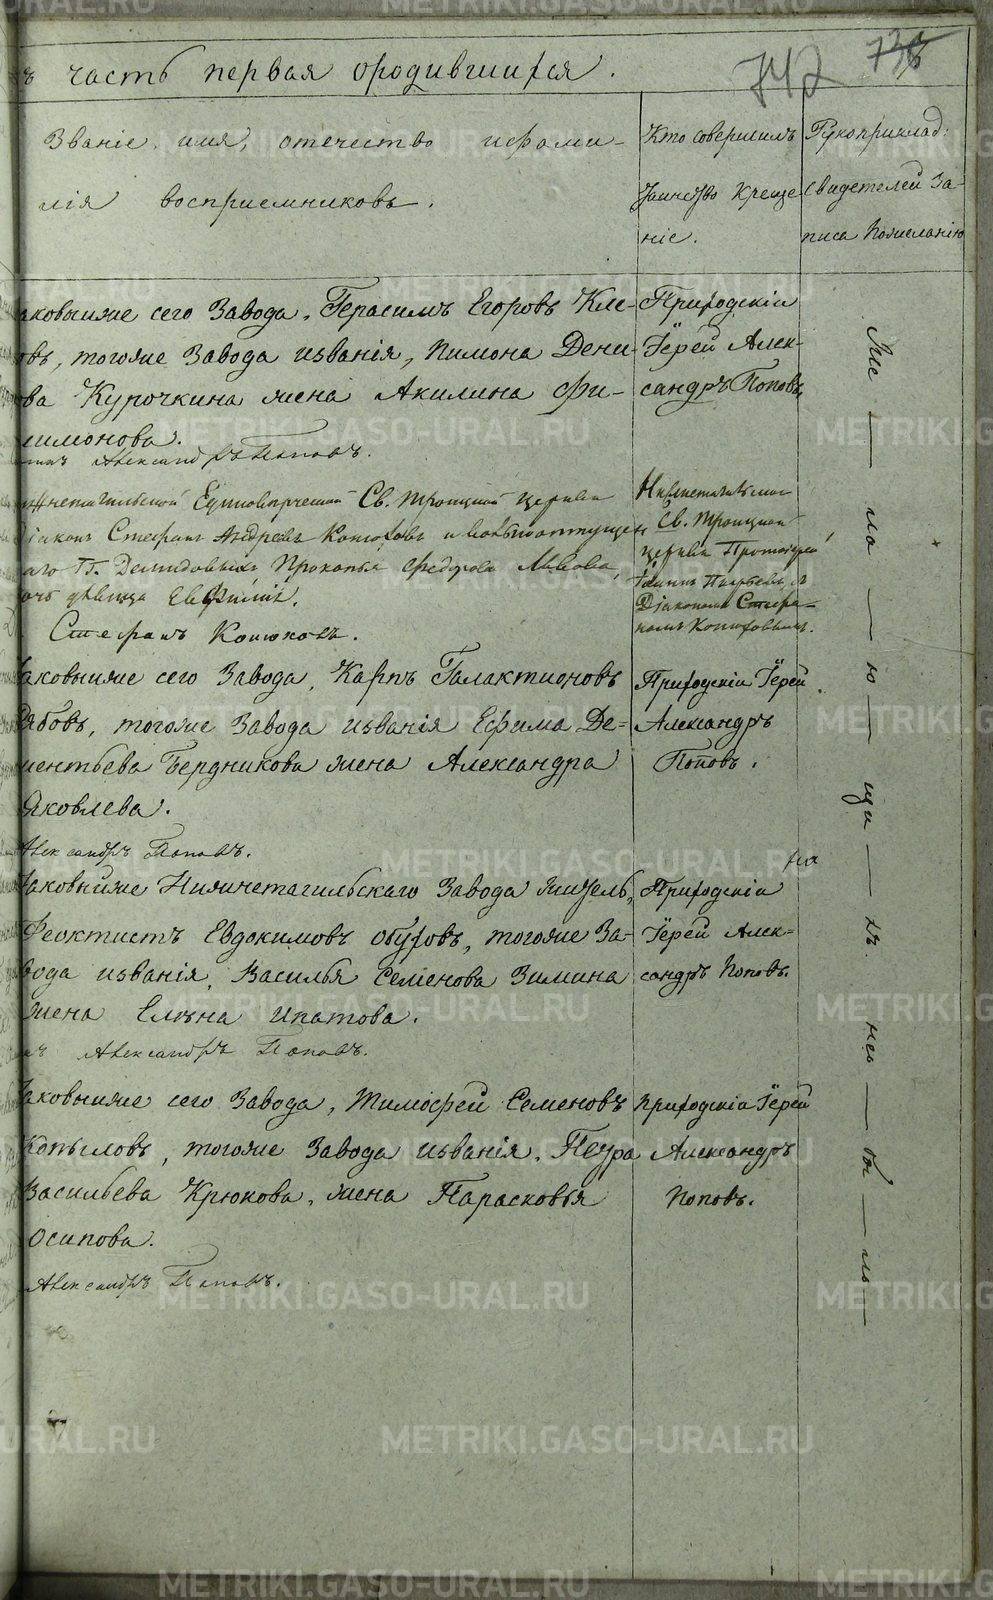 часть первая ородившихся.
742
738
Званіе, имя, отечество ифами-
лія воспріемниковъ.
Кто совершилъ
Таинство Креще-
ніе.
Рукоприклад:
Свидетелей За-
писа Пожеланію
аковыяже сего Завода, Герасимъ Егоровъ Кле-
овъ, тогоже Завода изванія, Пимона Дени-
ова Курочкина жена Акилина Фи-
лимонова.
Александръ Поповъ.
Приходскіи
Іерей Алек-
сандръ Поповъ,
жнетагильской Единоверческой Св. Троицкой церкви
Діаконъ Стефанъ Андреевъ Конюховъ и вольноотпущен
аго Гг. Демидовыхъ Прокопья Федорова Львова
очь девица Евфимія.
Стефанъ Конюховъ.
Нижнетагильской
Св. Троицкой
церкви Протоіерей
Іоаннъ
Діакономъ Стефа-
номъ Конюховымъ.
аковыяже сего Завода, Карпъ Галактионовъ
Рябовъ, тогоже Завода изванія Ефима Де-
ментьева Бердникова жена Александра
Яковлева.
Александръ Поповъ.
Приходскіи Іерей
Александръ
Поповъ.
аковыйже Нижнетагильскаго Завода житель,
Феоктистъ Евдокимовъ Обуховъ, тогоже За-
вода изванія, Василья Семенова Зимина
жена Елена Ипатова.
Александръ Поповъ.
Приходскіи
Іерей Алек-
сандръ Поповъ.
аковыяже сего Завода, Тимофей Семеновъ
Копыловъ, тогоже Завода изванія, Петра
Васильева Крюкова, жена Парасковья
Осипова.
Александръ Поповъ.
Приходскіи Іерей
Александръ
Поповъ.
Же — ла — ю — щи — хъ не — бы — ло —
METRIKI.GASO-URAL.RU